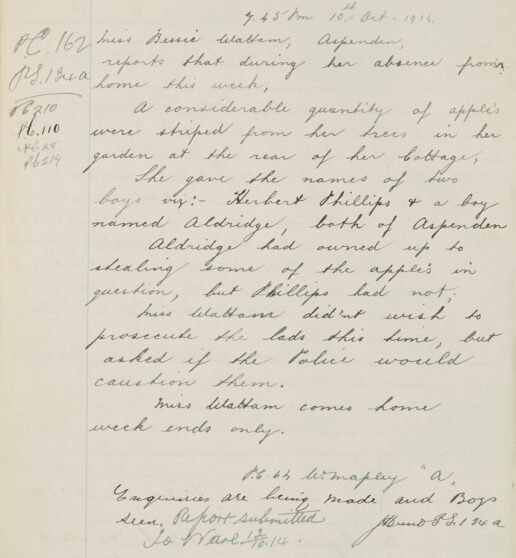 7.45 Pm 10th Oct - 1914.
P.C. 162
P.S. 134a
Pc 210
Pc. 110
Pc 214
Miss Bessie Wattam, Aspenden,
reports that during her absence from
home this week,
A considerable quantity of apple's
were striped from her trees in her
garden at the rear of her Cottage,
She gave the names of two
boys viz:- Herbert Phillips & a boy
named Aldridge, both of Aspenden
Aldridge had owned up to
stealing some of the apple's in
question, but Phillips had not,
Miss Wattam did'nt wish to
prosecute the lads this time, but
asked if the Police would
caustion them.
Miss Wattam comes home
week ends only.
P.C. 64 Wm mapley "A,
Enquiries are being made and Boys
seen. Report submitted
To Ware 12/10.14.
P.S 134a